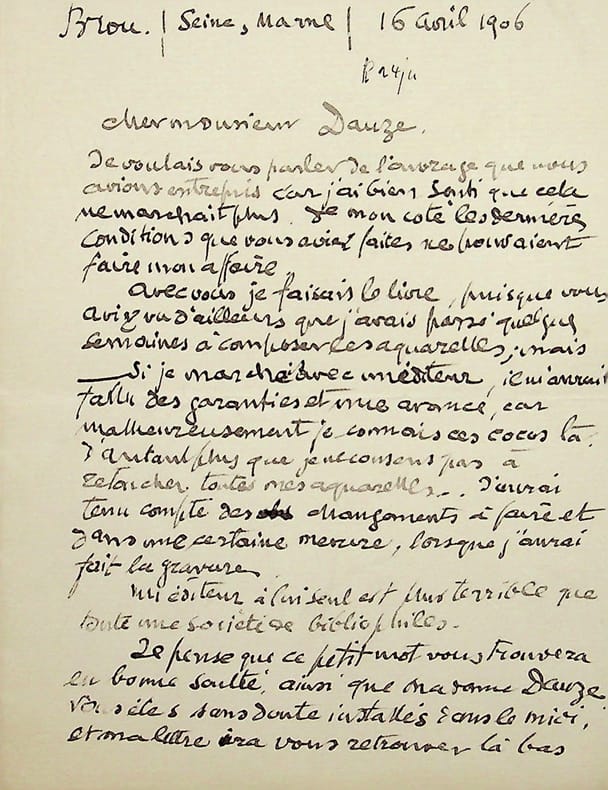 Brou. | Seine, Marne | 16 avril 1906
R 24 ju
cher monsieur Dauze.
Je voulais vous parler de l'ouvrage que nous
avions entrepris car j'ai bien senti que cela
ne marchait plus. De mon coté les dernières
conditions que vous aviez faites ne pouvaient
faire mon affaire.
Avec vous je faisais le livre, puisque vous
aviez vu d'ailleurs que j'avais passé quelques
semaines à composer les aquarelles, mais
— Si je marchais avec un éditeur, il m'aurait
fallu des garanties et une avance, car
malheureusement je connais ces cocos là.
D'autant plus que je ne consens pas à
retoucher toutes mes aquarelles... J'aurai
tenu compte des changements à faire et
dans une certaine mesure, lorsque j'aurai
fait la gravure
Un éditeur à lui seul est plus terrible que
toute une société de bibliophiles.
Je pense que ce petit mot vous trouvera
en bonne santé, ainsi que madame Dauze,
vous êtes sans doute installés dans le midi,
et ma lettre ira vous retrouver là bas